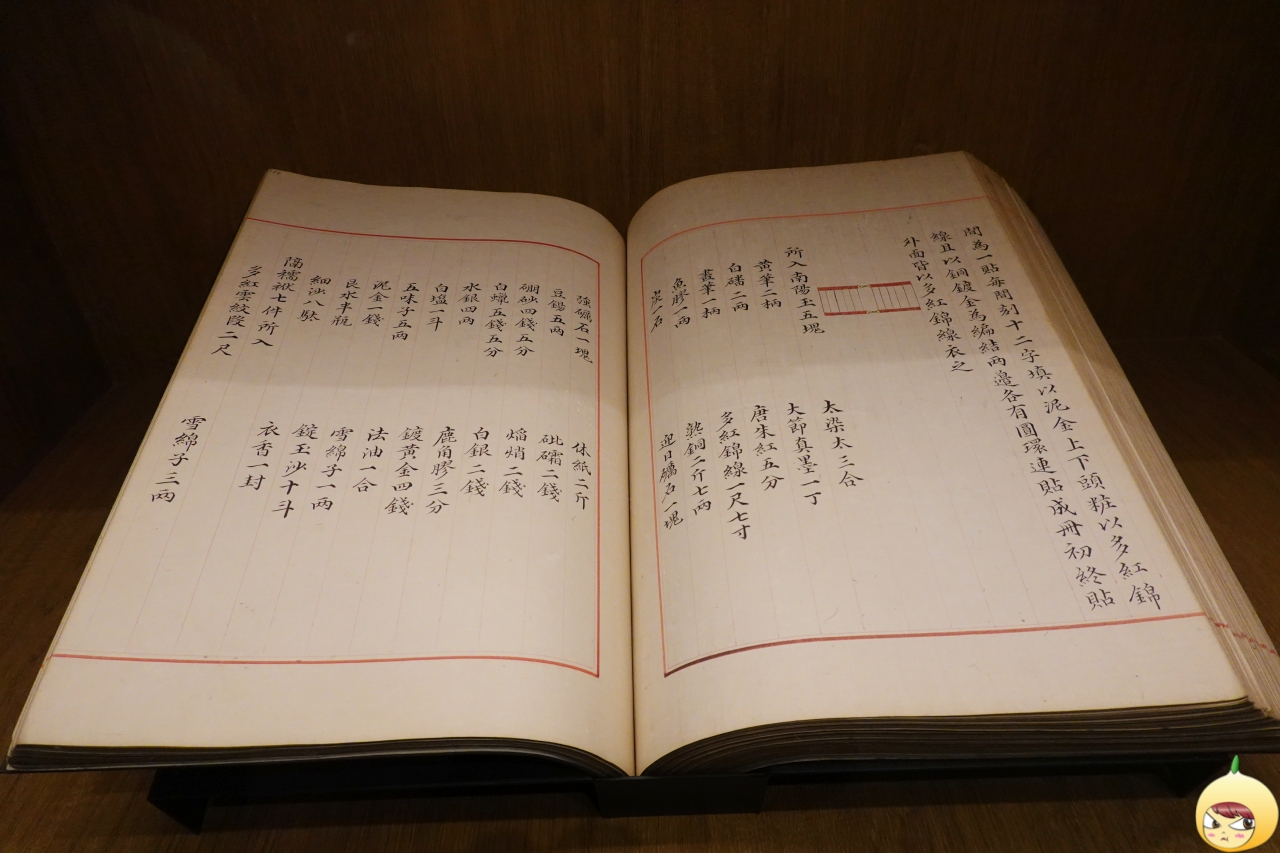 間為一貼每間刻十二字填以泥金上下頭粧以多紅錦
線且以銅鍍金為編結兩邊各有圓環連貼成冊初終貼
外面皆以多紅錦線衣之
所入南陽玉五塊 太染太三合
黃筆二柄 大節真墨一丁
白磻二兩 唐朱紅五分
畫筆一柄 多紅錦線一尺七寸
魚膠一兩 熟銅二斤七兩
炭一石 延日礪石一塊
強礪石一塊 休紙二斤
豆錫五兩 砒礵二錢
硼砂四錢五分 焰焇二錢
白蠟五錢五分 白銀二錢
水銀四兩 鹿角膠三分
白塩一斗 鍍黃金四錢
五味子五兩 法油一合
泥金一錢 雪綿子一兩
艮水半瓶 錠玉沙十斗
細沙八駄 衣香一封
隔襦袱七件所入
多紅雲紋段二尺 雪綿子三兩